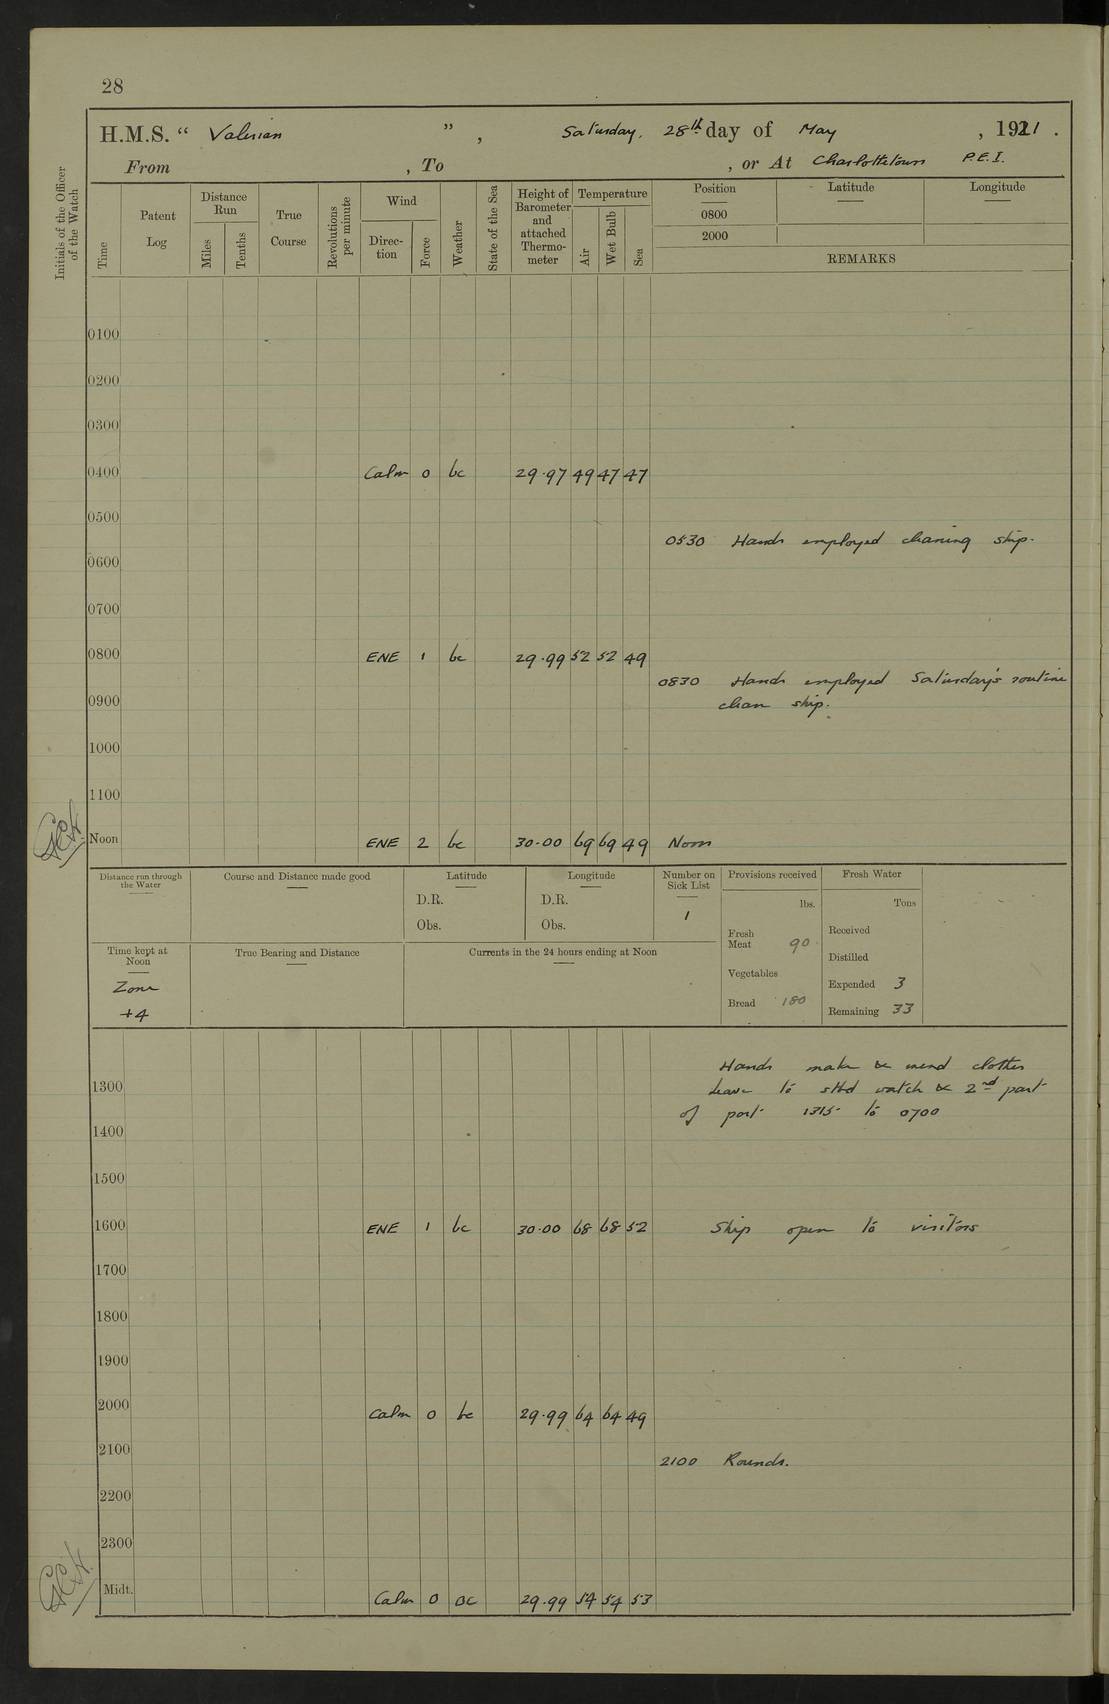 28
H.M.S. “ Valerian ” , Saturday, 28th day of May , 1921 .
From , To , or At Charlottetown P.E.I.
Initials of the Officer of the Watch
Time
Patent Log
Distance Run
Miles
Tenths
True Course
Revolutions per minute
Wind
Direc- tion
Force
Weather
State of the Sea
Height of Barometer and attached Thermo- meter
Temperature
Air
Wet Bulb
Sea
Position
Latitude
Longitude
0800
2000
REMARKS
0100
0200
0300
0400 Calm 0 bc 29.97 49 47 47
0500
0530 Hands employed cleaning ship.
0600
0700
0800 ENE 1 bc 29.99 52 52 49
0830 Hands employed Saturday's routine
0900 clean ship.
1000
1100
Noon ENE 2 bc 30.00 69 69 49 Noon
Distance run through the Water
Course and Distance made good
Latitude
D.R.
Obs.
Longitude
D.R.
Obs.
Number on Sick List
1
Provisions received
lbs.
Fresh Meat 90
Vegetables
Bread 180
Fresh Water
Tons
Received
Distilled
Expended 3
Remaining 33
Time kept at Noon
Zone
+4
True Bearing and Distance
Currents in the 24 hours ending at Noon
Hands make & mend clothes
1300 Leave to stbd watch & 2nd part
of port 1315 to 0700
1400
1500
1600 ENE 1 bc 30.00 68 68 52 Ship open to visitors
1700
1800
1900
2000 Calm 0 bc 29.99 64 64 49
2100
2100 Rounds.
2200
2300
Midt. Calm 0 oc 29.99 54 54 53